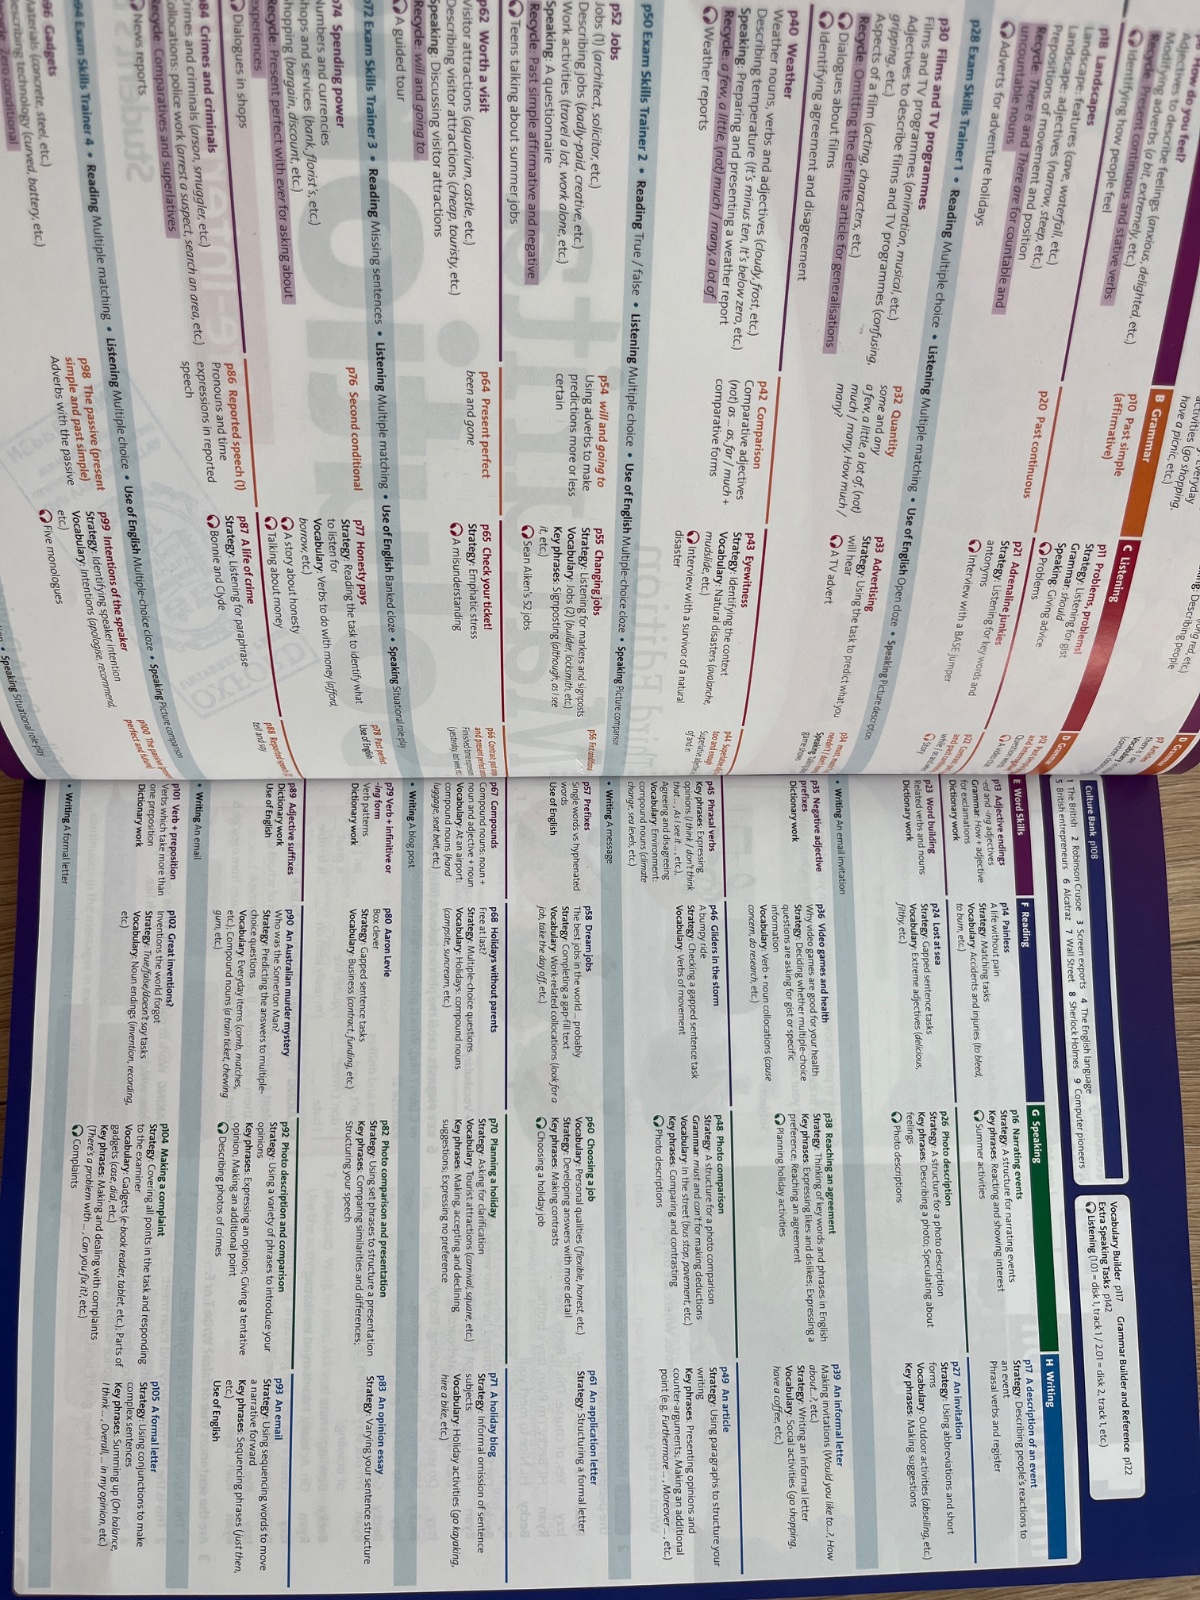 Culture Bank p108
1 The British 2 Robinson Crusoe 3 Screen exports 4 The English language
5 British entrepreneurs 6 Alcatraz 7 Wall Street 8 Sherlock Holmes 9 Computer pioneers
Vocabulary Builder p117 Grammar Builder and Reference p122
Extra Speaking Tasks p142
Listening (1.01 = disk 1, track 1 / 2.01 = disk 2, track 1, etc.)
do you feel?
Adjectives to describe feelings (anxious, delighted, etc.)
Modifying adverbs (a bit, extremely, etc.)
Recycle: Present continuous and stative verbs
Identifying how people feel
B Grammar
p10 Past simple
(affirmative)
C Listening
p11 Problems, problems!
Strategy: Listening for gist
Grammar: should
Speaking: Giving advice
Problems
E Word Skills
p13 Adjective endings
-ed and -ing adjectives
Grammar: How + adjective
for exclamations
Dictionary work
F Reading
p14 Painless
A life without pain
Strategy: Matching tasks
Vocabulary: Accidents and injuries (to bleed,
to burn, etc.)
G Speaking
p16 Narrating events
Strategy: A structure for narrating events
Key phrases: Reacting and showing interest
Summer activities
H Writing
p17 A description of an event
Strategy: Describing people's reactions to
an event
Phrasal verbs and register
p18 Landscapes
Landscape: features (cave, waterfall, etc.)
Landscape: adjectives (narrow, steep, etc.)
Prepositions of movement and position
Recycle: There is and There are for countable and
uncountable nouns
Adverts for adventure holidays
p20 Past continuous
p21 Adrenaline junkies
Strategy: Listening for key words and
antonyms
Interview with a BASE jumper
p23 Word building
Related verbs and nouns
Dictionary work
p24 Lost at sea
Strategy: Gapped sentence tasks
Vocabulary: Extreme adjectives (delicious,
filthy, etc.)
p26 Photo description
Strategy: A structure for a photo description
Key phrases: Describing a photo; Speculating about
feelings
Photo descriptions
p27 An invitation
Strategy: Using abbreviations and short
forms
Vocabulary: Outdoor activities (abseiling, etc.)
Key phrases: Making suggestions
p28 Exam Skills Trainer 1 • Reading Multiple choice • Listening Multiple matching • Use of English Open cloze • Speaking Picture description • Writing An email invitation
p30 Films and TV programmes
Films and TV programmes (animation, musical, etc.)
Adjectives to describe films and TV programmes (confusing,
gripping, etc.)
Aspects of a film (acting, characters, etc.)
Recycle: Omitting the definite article for generalisations
Dialogues about films
Identifying agreement and disagreement
p32 Quantity
some and any
a few, a little, a lot of, (not)
much / many, How much /
many?
p33 Advertising
Strategy: Using the task to predict what you
will hear
A TV advert
p35 Negative adjective
prefixes
Dictionary work
p36 Video games and health
Why video games are good for your health
Strategy: Deciding whether multiple-choice
questions are asking for gist or specific
information
Vocabulary: Verb + noun collocations (cause
concern, do research, etc.)
p38 Reaching an agreement
Strategy: Thinking of key words and phrases in English
Key phrases: Expressing likes and dislikes; Expressing a
preference; Reaching an agreement
Planning holiday activities
p39 An informal letter
Making invitations (Would you like to…?, How
about…?, etc.)
Strategy: Writing an informal letter
Vocabulary: Social activities (go shopping,
have a coffee, etc.)
p40 Weather
Weather nouns, verbs and adjectives (cloudy, frost, etc.)
Describing temperature (It's minus ten, It's below zero, etc.)
Speaking: Preparing and presenting a weather report
Recycle: a few, a little, (not) much / many, a lot of
Weather reports
p42 Comparison
Comparative adjectives
(not) as … as, far / much +
comparative forms
p43 Eyewitness
Strategy: Identifying the context
Vocabulary: Natural disasters (avalanche,
mudslide, etc.)
Interview with a survivor of a natural
disaster
p45 Phrasal verbs
Key phrases: Expressing
opinions (I think / don't think
that…, As I see it…, etc.),
Agreeing and disagreeing
Vocabulary: Environment:
compound nouns (climate
change, sea levels, etc.)
p46 Gliders in the storm
A bumpy ride
Strategy: Checking a gapped sentence task
Vocabulary: Verbs of movement
p48 Photo comparison
Strategy: A structure for a photo comparison
Grammar: must and can't for making deductions
Vocabulary: In the street (bus stop, pavement, etc.)
Key phrases: Comparing and contrasting
Photo descriptions
p49 An article
Strategy: Using paragraphs to structure your
writing
Key phrases: Presenting opinions and
counter-arguments; Making an additional
point (e.g. Furthermore…, Moreover…, etc.)
p50 Exam Skills Trainer 2 • Reading True / false • Listening Multiple choice • Use of English Multiple-choice cloze • Speaking Picture comparison • Writing A message
p52 Jobs
Jobs (1) (architect, solicitor, etc.)
Describing jobs (badly-paid, creative, etc.)
Work activities (travel a lot, work alone, etc.)
Speaking: A questionnaire
Recycle: Past simple affirmative and negative
Teens talking about summer jobs
p54 will and going to
Using adverbs to make
predictions more or less
certain
p55 Changing jobs
Strategy: Listening for markers and signposts
Vocabulary: Jobs (2) (builder, locksmith, etc.)
Key phrases: Signposting (although, as I see
it, etc.)
Sean Aiken's 52 jobs
p57 Prefixes
Single words vs hyphenated
words
Use of English
p58 Dream jobs
The best jobs in the world … probably
Strategy: Completing a gap-fill text
Vocabulary: Work-related collocations (look for a
job, take the day off, etc.)
p60 Choosing a job
Vocabulary: Personal qualities (flexible, honest, etc.)
Strategy: Developing answers with more detail
Key phrases: Making contrasts
Choosing a holiday job
p61 An application letter
Strategy: Structuring a formal letter
p62 Worth a visit
Visitor attractions (aquarium, castle, etc.)
Describing visitor attractions (cheap, touristy, etc.)
Speaking: Discussing visitor attractions
Recycle: will and going to
A guided tour
p64 Present perfect
been and gone
p65 Check your ticket!
Strategy: Emphatic stress
A misunderstanding
p67 Compounds
Compound nouns: noun +
noun and adjective + noun
Vocabulary: At an airport:
compound nouns (hand
luggage, seat belt, etc.)
p68 Holidays without parents
Free at last?
Strategy: Multiple-choice questions
Vocabulary: Holidays: compound nouns
(campsite, suncream, etc.)
p70 Planning a holiday
Strategy: Asking for clarification
Vocabulary: Tourist attractions (carnival, square, etc.)
Key phrases: Making, accepting and declining
suggestions; Expressing no preference
p71 A holiday blog
Strategy: Informal omission of sentence
subjects
Vocabulary: Holiday activities (go kayaking,
hire a bike, etc.)
p72 Exam Skills Trainer 3 • Reading Missing sentences • Listening Multiple matching • Use of English Banked cloze • Speaking Situational role-play • Writing A blog post
p74 Spending power
Numbers and currencies
Shops and services (bank, florist's, etc.)
Shopping (bargain, discount, etc.)
Recycle: Present perfect with ever for asking about
experiences
Dialogues in shops
p76 Second conditional
p77 Honesty pays
Strategy: Reading the task to identify what
to listen for
Vocabulary: Verbs to do with money (afford,
borrow, etc.)
A story about honesty
Talking about money
p79 Verb + infinitive or
-ing form
Verb patterns
Dictionary work
p80 Aaron Levie
Box clever
Strategy: Gapped sentence tasks
Vocabulary: Business (contract, funding, etc.)
p82 Photo comparison and presentation
Strategy: Using set phrases to structure a presentation
Key phrases: Comparing similarities and differences;
Structuring your speech
p83 An opinion essay
Strategy: Varying your sentence structure
p84 Crimes and criminals
Crimes and criminals (arson, smuggler, etc.)
Collocations: police work (arrest a suspect, search an area, etc.)
Recycle: Comparatives and superlatives
News reports
p86 Reported speech (1)
Pronouns and time
expressions in reported
speech
p87 A life of crime
Strategy: Listening for paraphrase
Bonnie and Clyde
p89 Adjective suffixes
Dictionary work
Use of English
p90 An Australian murder mystery
Who was the Somerton Man?
Strategy: Predicting the answers to multiple-
choice questions
Vocabulary: Everyday items (comb, matches,
etc.); Compound nouns (a train ticket, chewing
gum, etc.)
p92 Photo description and comparison
Strategy: Using a variety of phrases to introduce your
opinions
Key phrases: Expressing an opinion; Giving a tentative
opinion; Making an additional point
Describing photos of crimes
p93 An email
Strategy: Using sequencing words to move
a narrative forward
Key phrases: Sequencing phrases (just then,
etc.)
Use of English
p94 Exam Skills Trainer 4 • Reading Multiple matching • Listening Multiple choice • Use of English Multiple-choice cloze • Speaking Picture comparison • Writing An email
p96 Gadgets
Materials (concrete, steel, etc.)
Describing technology (curved, battery, etc.)
Recycle: Zero conditional
p98 The passive (present
simple and past simple)
Adverbs with the passive
p99 Intentions of the speaker
Strategy: Identifying speaker intention
Vocabulary: Intentions (apologise, recommend,
etc.)
Five monologues
p101 Verb + preposition
Verbs which take more than
one preposition
Dictionary work
p102 Great inventions?
Inventions the world forgot
Strategy: True/false/doesn't say tasks
Vocabulary: Noun endings (invention, recording,
etc.)
p104 Making a complaint
Strategy: Covering all points in the task and responding
to the examiner
Vocabulary: Gadgets (e-book reader, tablet, etc.); Parts of
gadgets (case, dial, etc.)
Key phrases: Making and dealing with complaints
(There's a problem with…, Can you fix it?, etc.)
Complaints
p105 A formal letter
Strategy: Using conjunctions to make
complex sentences
Key phrases: Summing up (On balance,
I think…, Overall, … in my opinion, etc.)
• Speaking Situational role-play • Writing A formal letter